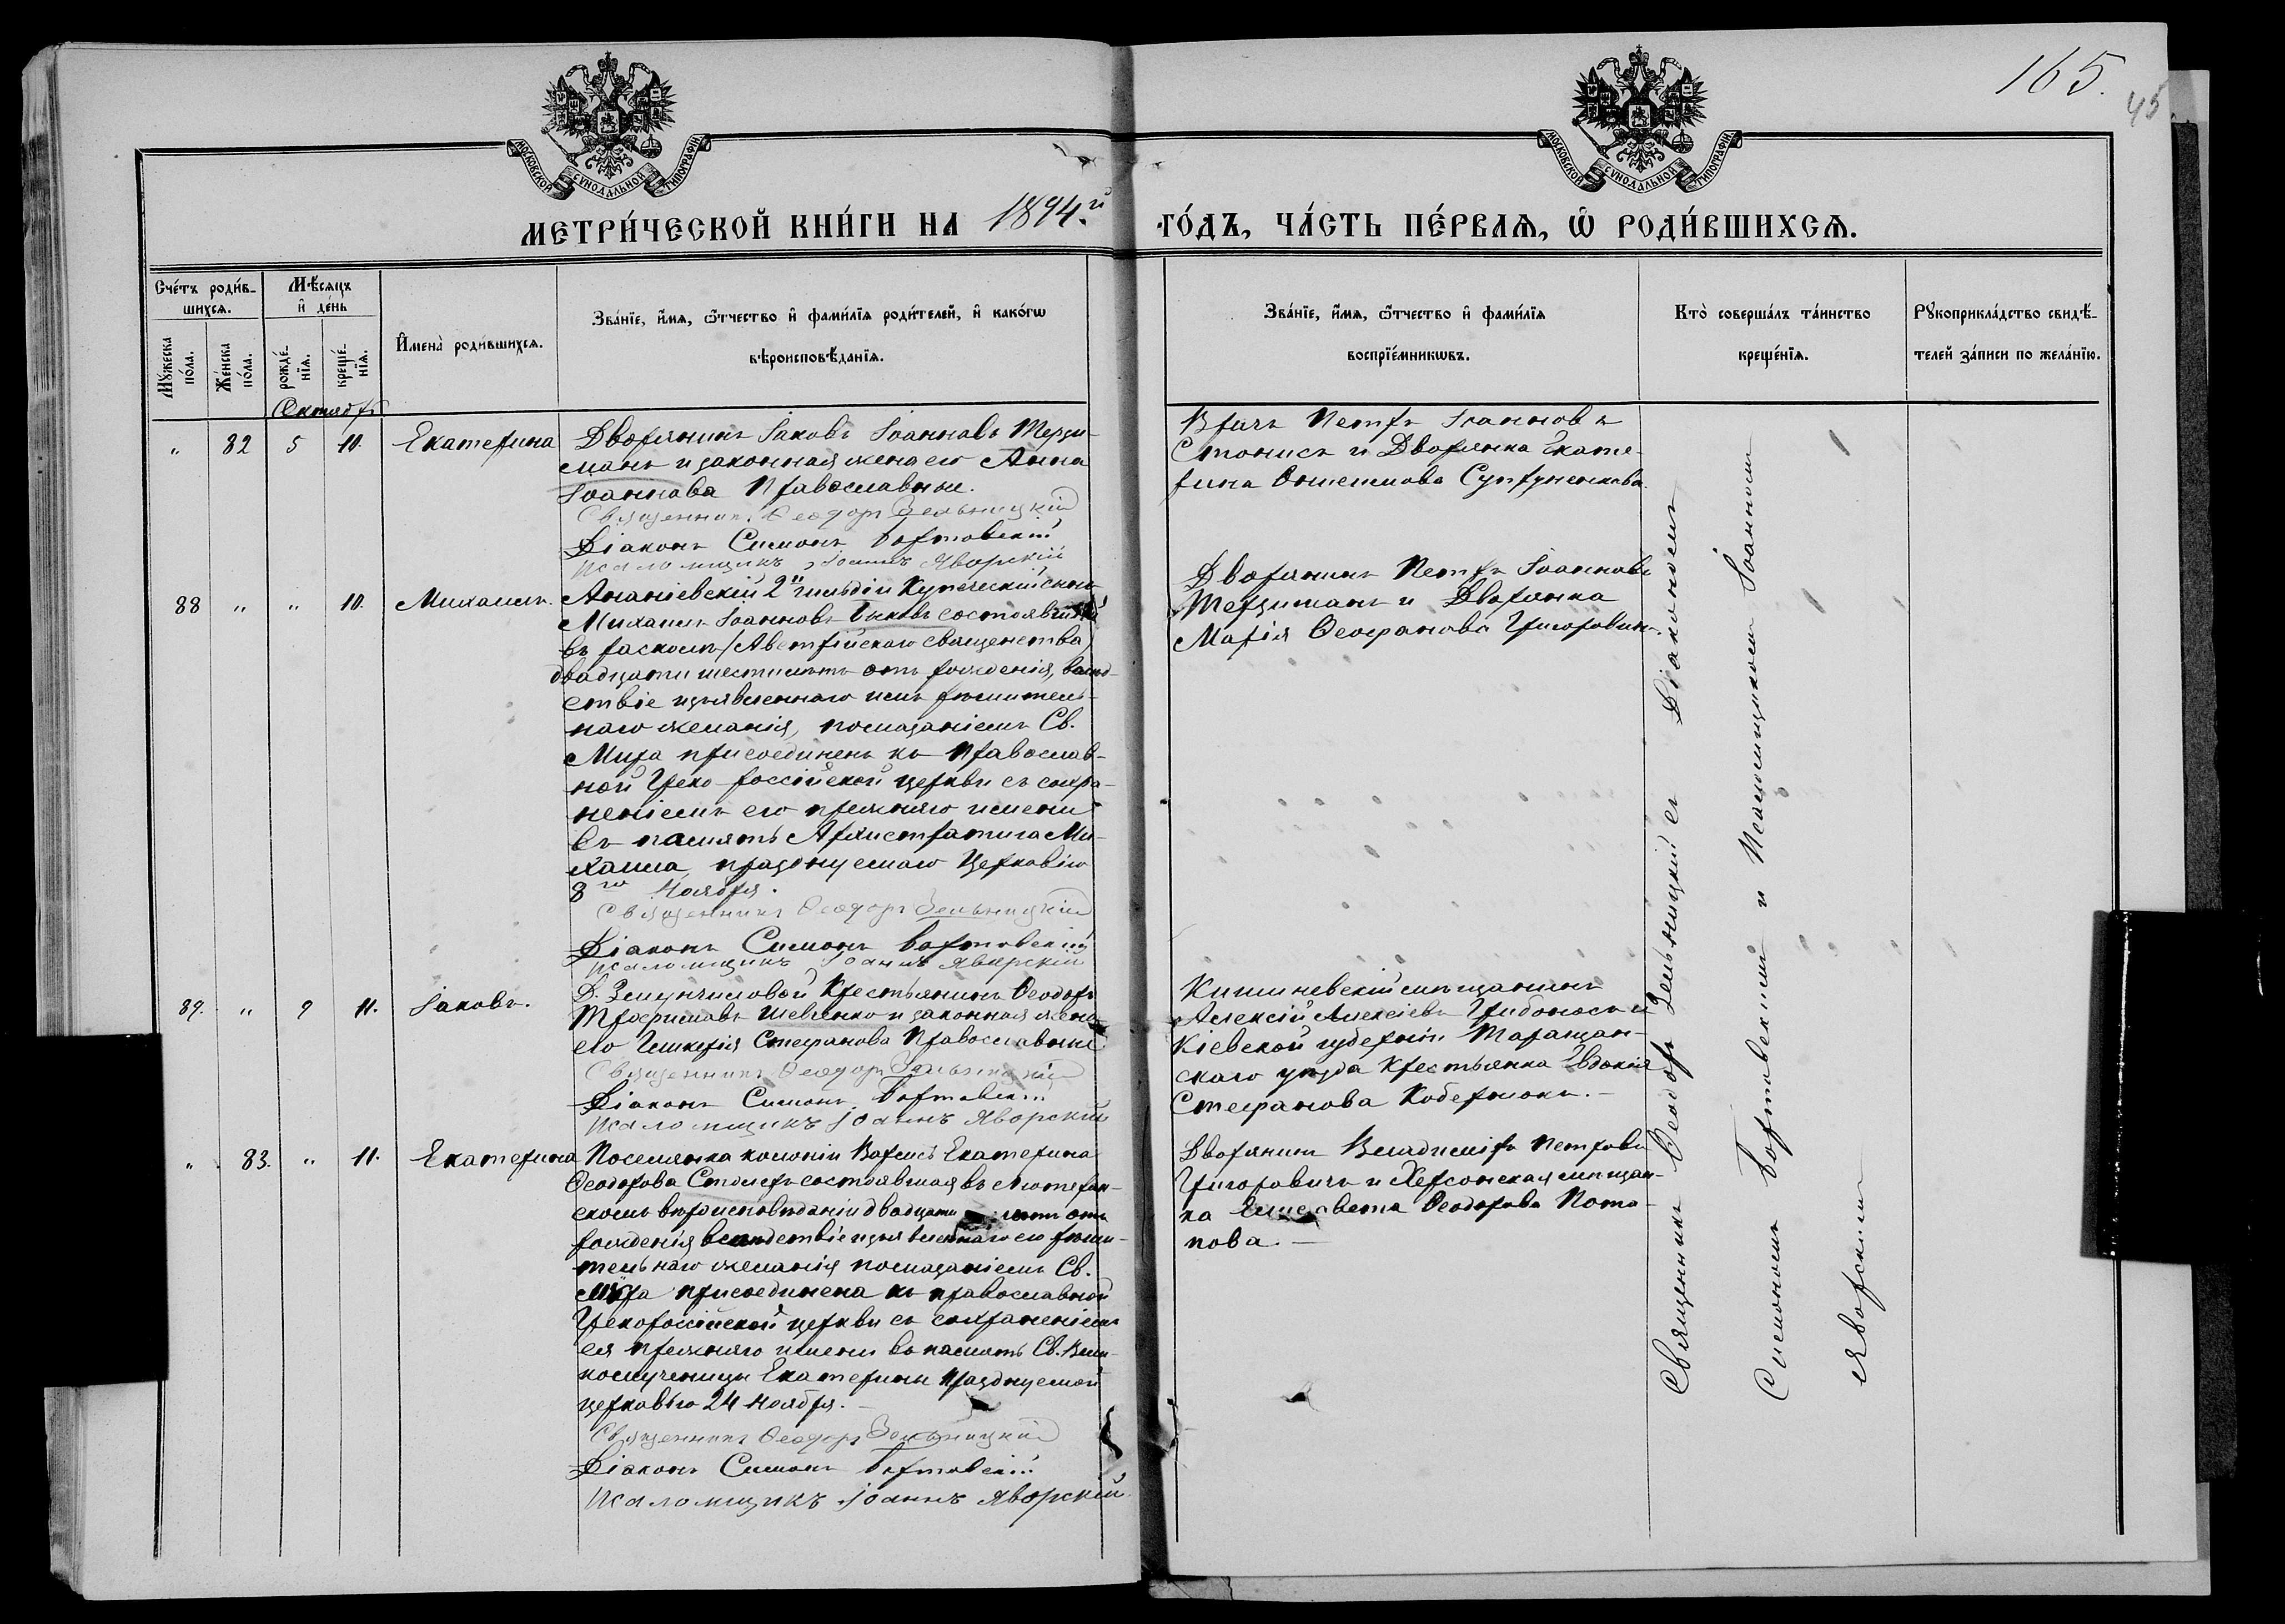 165.
45
МОСКОВСКОЙ СѴНОДАЛЬНОЙ ТИПОГРАФІИ
МОСКОВСКОЙ СѴНОДАЛЬНОЙ ТИПОГРАФІИ
МЕТРИ́ЧЕСКОЙ КНИ́ГИ НА 1894.й ГО́ДЪ, ЧА́СТЬ ПЕ́РВАѦ, Ѡ҆ РОДИ́ВШИХСѦ.
Сче́тъ роди́в-
шихсѧ.
Мѣ́сѧцъ
и҆ де́нь
Мꙋ́жеска по́ла.
Же́нска по́ла.
рожде́-нїѧ.
креще́-нїѧ.
И҆мена̀ роди́вшихсѧ.
Зва́нїе, и҆́мѧ, ѻ҆́тчество и҆ фами́лїѧ роди́телей, и҆ како́гѡ
вѣроисповѣ́данїѧ.
Зва́нїе, и҆́мѧ, ѻ҆́тчество и҆ фами́лїѧ
воспрїе́мникѡвъ.
Кто̀ соверша́лъ та́инство
креще́нїѧ.
Рꙋкоприкла́дство свидѣ́-
телей за́писи по жела́нїю.
Октябрь
" 82 5 10. Екатерина
Дворянинъ Іаковъ Іоанновъ Терзи-
манъ и законная жена его Анна
Іоаннова Православные.
Священникъ Ѳеодоръ Зельницкій
Діаконъ Симонъ Бортовскій
Псаломщикъ Іоаннъ Яворскій
Врачъ Петръ Іоанновъ
Стонисъ и Дворянка Екате-
рина
88 " " 10. Михаилъ.
Ананіевскій 2й гильдіи Купеческій сынъ
Михаилъ Іоанновъ Быковъ состоявшій
въ расколѣ /Австрійскаго священства/
двадцати шести лѣтъ отъ рожденія, вслѣд-
ствіе изъявленнаго имъ рѣшитель-
наго желанія, помазаніемъ Св.
Мира присоединенъ къ Православ-
ной Греко-россійской церкви съ сохра-
неніемъ его прежняго имени
въ память Архистратига Ми-
хаила, празднуемаго Церковію
8го Ноября.
Священникъ Ѳеодоръ Зельницкій
Діаконъ Симонъ Бортовскій
Псаломщикъ Іоаннъ Яворскій
Дворянинъ Петръ Іоанновъ
Терзиманъ и Дворянка
Марія Ѳеофанова Григоровичъ.
89. " 9 11. Іаковъ.
Д. Крестьянинъ Ѳеодоръ
Трофимовъ Шевченко и законная жена
его Гликерія Стефанова Православные
Священникъ Ѳеодоръ Зельницкій
Діаконъ Симонъ Бортовскій
Псаломщикъ Іоаннъ Яворскій
Кишиневскій мѣщанинъ
Алексій Алексіевъ Грибоносъ и
Кіевской губерніи Таращан-
скаго уѣзда Крестьянка Евдокія
Стефанова
" 83. " 11. Екатерина
Поселянка колоніи Вормсъ Екатерина
Ѳеодорова Столлеръ состоявшая въ Лютеран-
скомъ вѣроисповѣданіи двадцати лѣтъ отъ
рожденія вслѣдствіе изъявленнаго ею рѣши-
тельнаго желанія помазаніемъ Св.
Мѵра присоединена къ православной
Грекороссійской церкви съ сохраненіемъ
ея прежняго имени въ память Св. Вели-
комученицы Екатерины празднуемой
церковью 24 Ноября.
Священникъ Ѳеодоръ Зельницкій
Діаконъ Симонъ Бортовскій
Псаломщикъ Іоаннъ Яворскій
Дворянинъ Владиміръ Петровъ
Григоровичъ и Херсонская мѣщан-
ка Елисавета Ѳеодорова Пота-
пова.
Священникъ Ѳеодоръ Зельницкій съ Діакономъ
Симономъ Бортовскимъ и Псаломщикомъ Іоанномъ
Яворскимъ